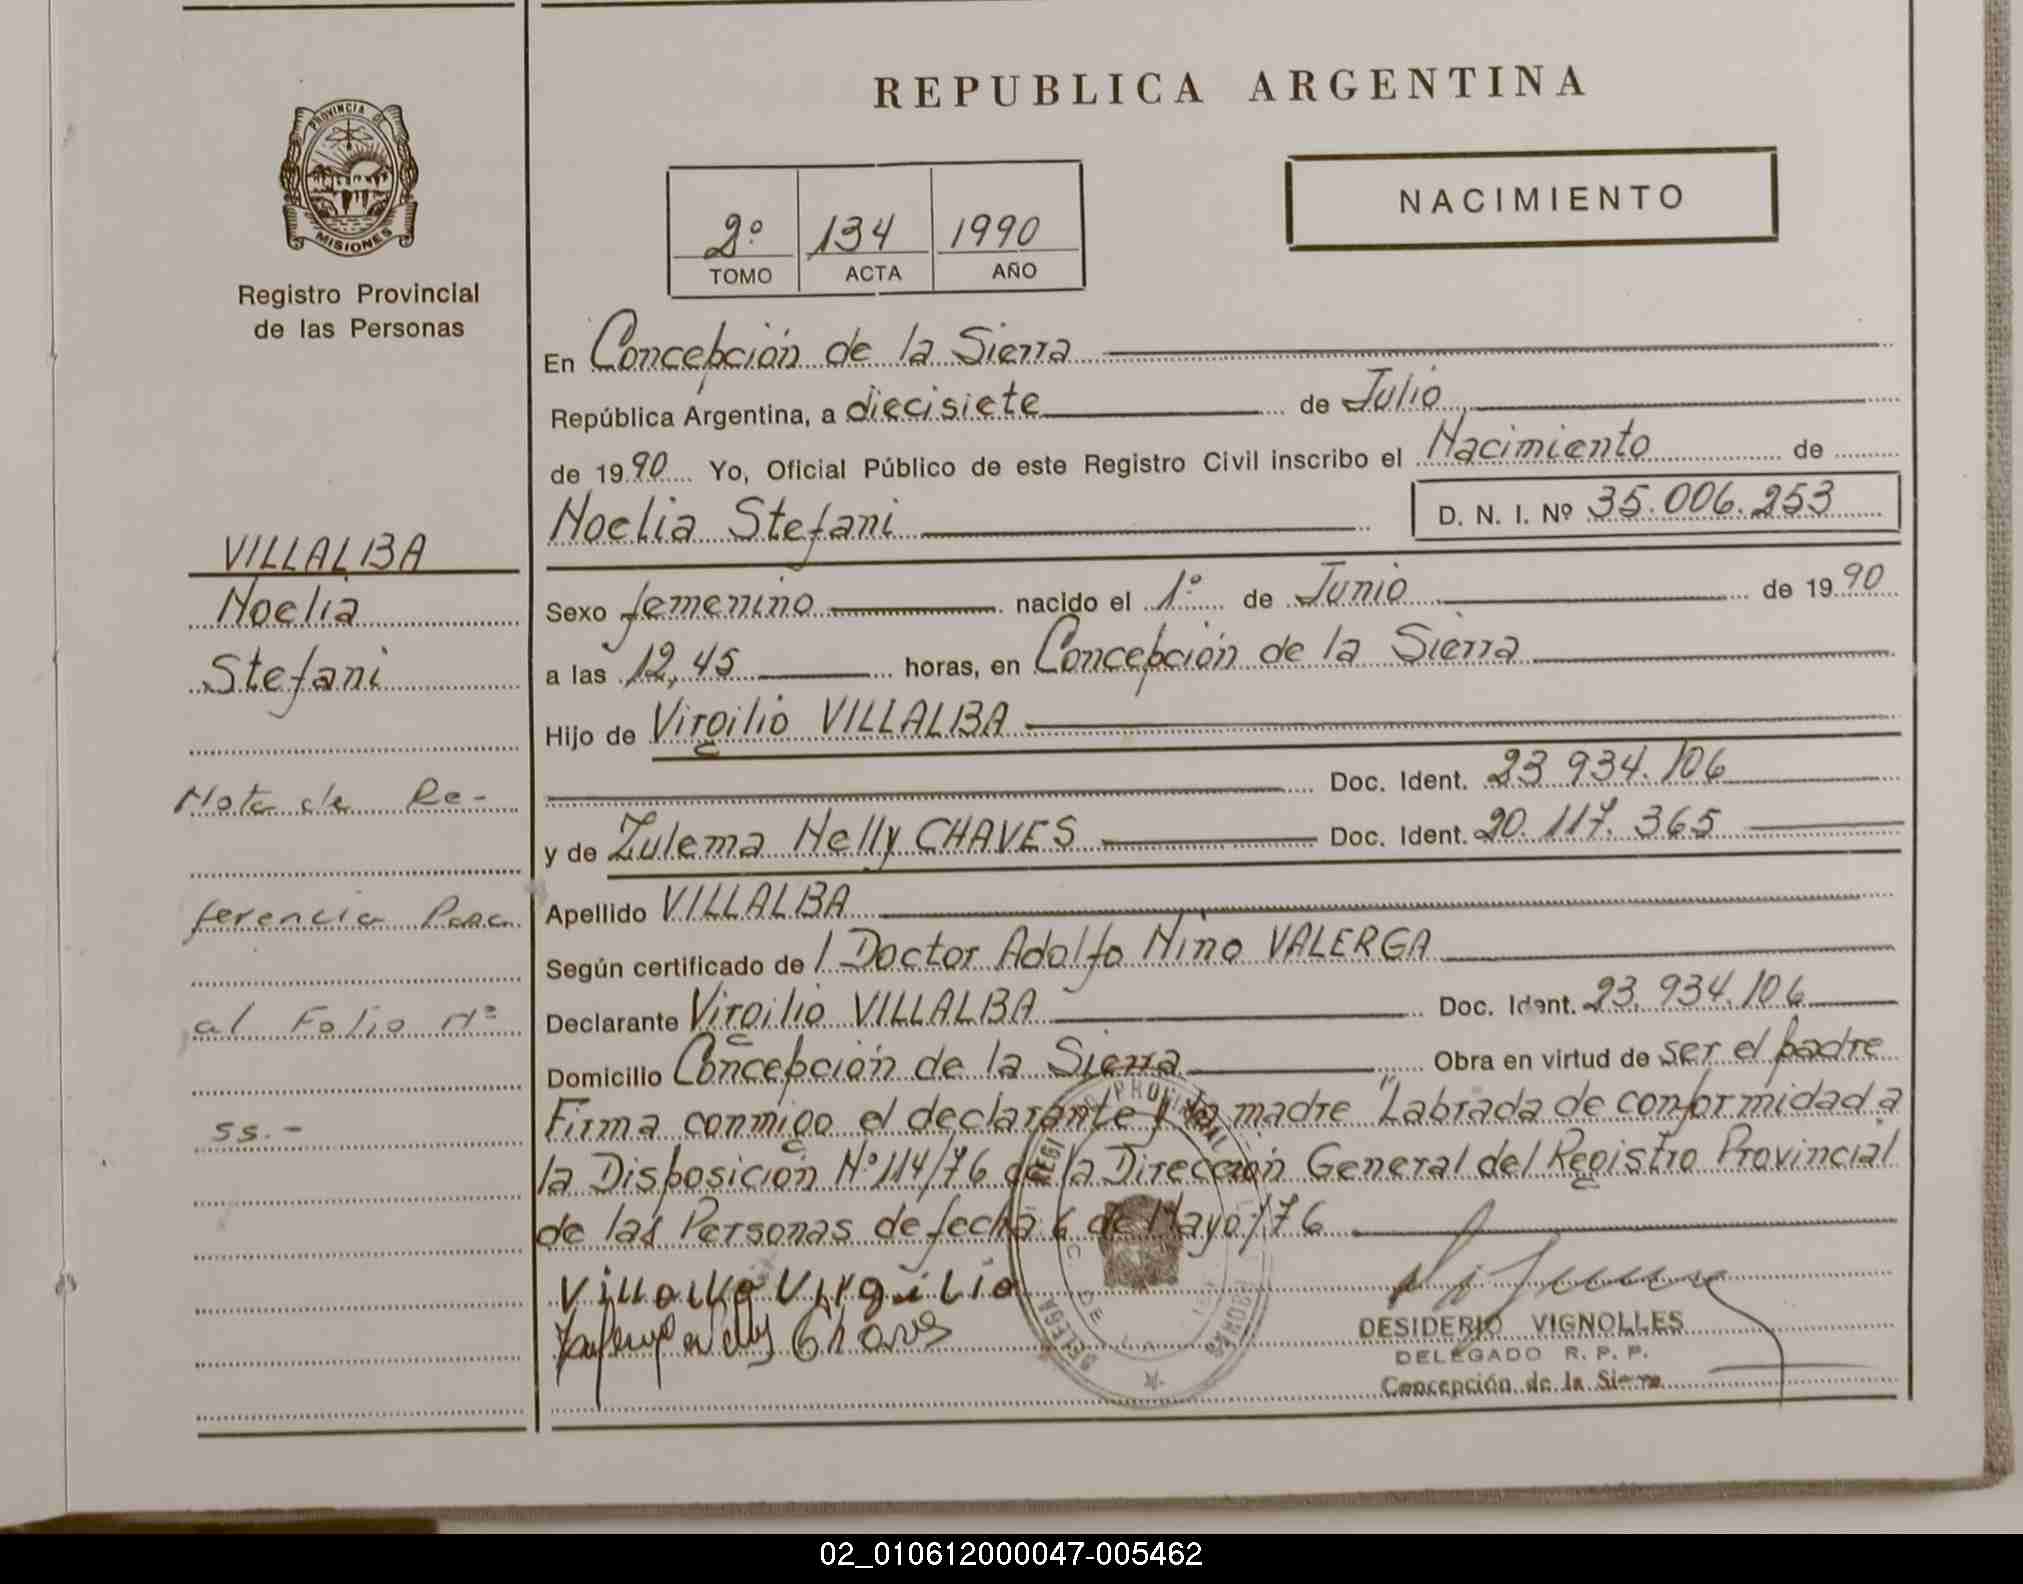 REPUBLICA ARGENTINA
PROVINCIA DE
MISIONES
Registro Provincial
de las Personas
NACIMIENTO
2º 134 1990
TOMO ACTA AÑO
En Concepción de la Sierra
República Argentina, a diecisiete de Julio
de 1990 Yo, Oficial Público de este Registro Civil inscribo el Nacimiento de
Noelia Stefani D. N. I. Nº 35.006.253
Sexo femenino nacido el 1º de Junio de 1990
a las 12,45 horas, en Concepción de la Sierra
Hijo de Virgilio VILLALBA
Doc. Ident. 23.934.106
y de Zulema Nelly CHAVES Doc. Ident. 20.117.365
Apellido VILLALBA
Según certificado de l Doctor Adolfo Nino VALERGA
Declarante Virgilio VILLALBA Doc. Ident. 23.934.106
Domicilio Concepción de la Sierra Obra en virtud de ser el padre
Firma conmigo el declarante y la madre "Labrada de conformidad a
la Disposición Nº 114/76 de la Dirección General del Registro Provincial
de las Personas de fecha 6 de Mayo/76
Villalba Virgilio
Nelly Chaves
DESIDERIO VIGNOLLES
DELEGADO R. P. P.
Concepción de la Sierra
VILLALBA
Noelia
Stefani
Nota de Re-
ferencia Pasa
al Folio Nº
ss.-
02_010612000047-005462